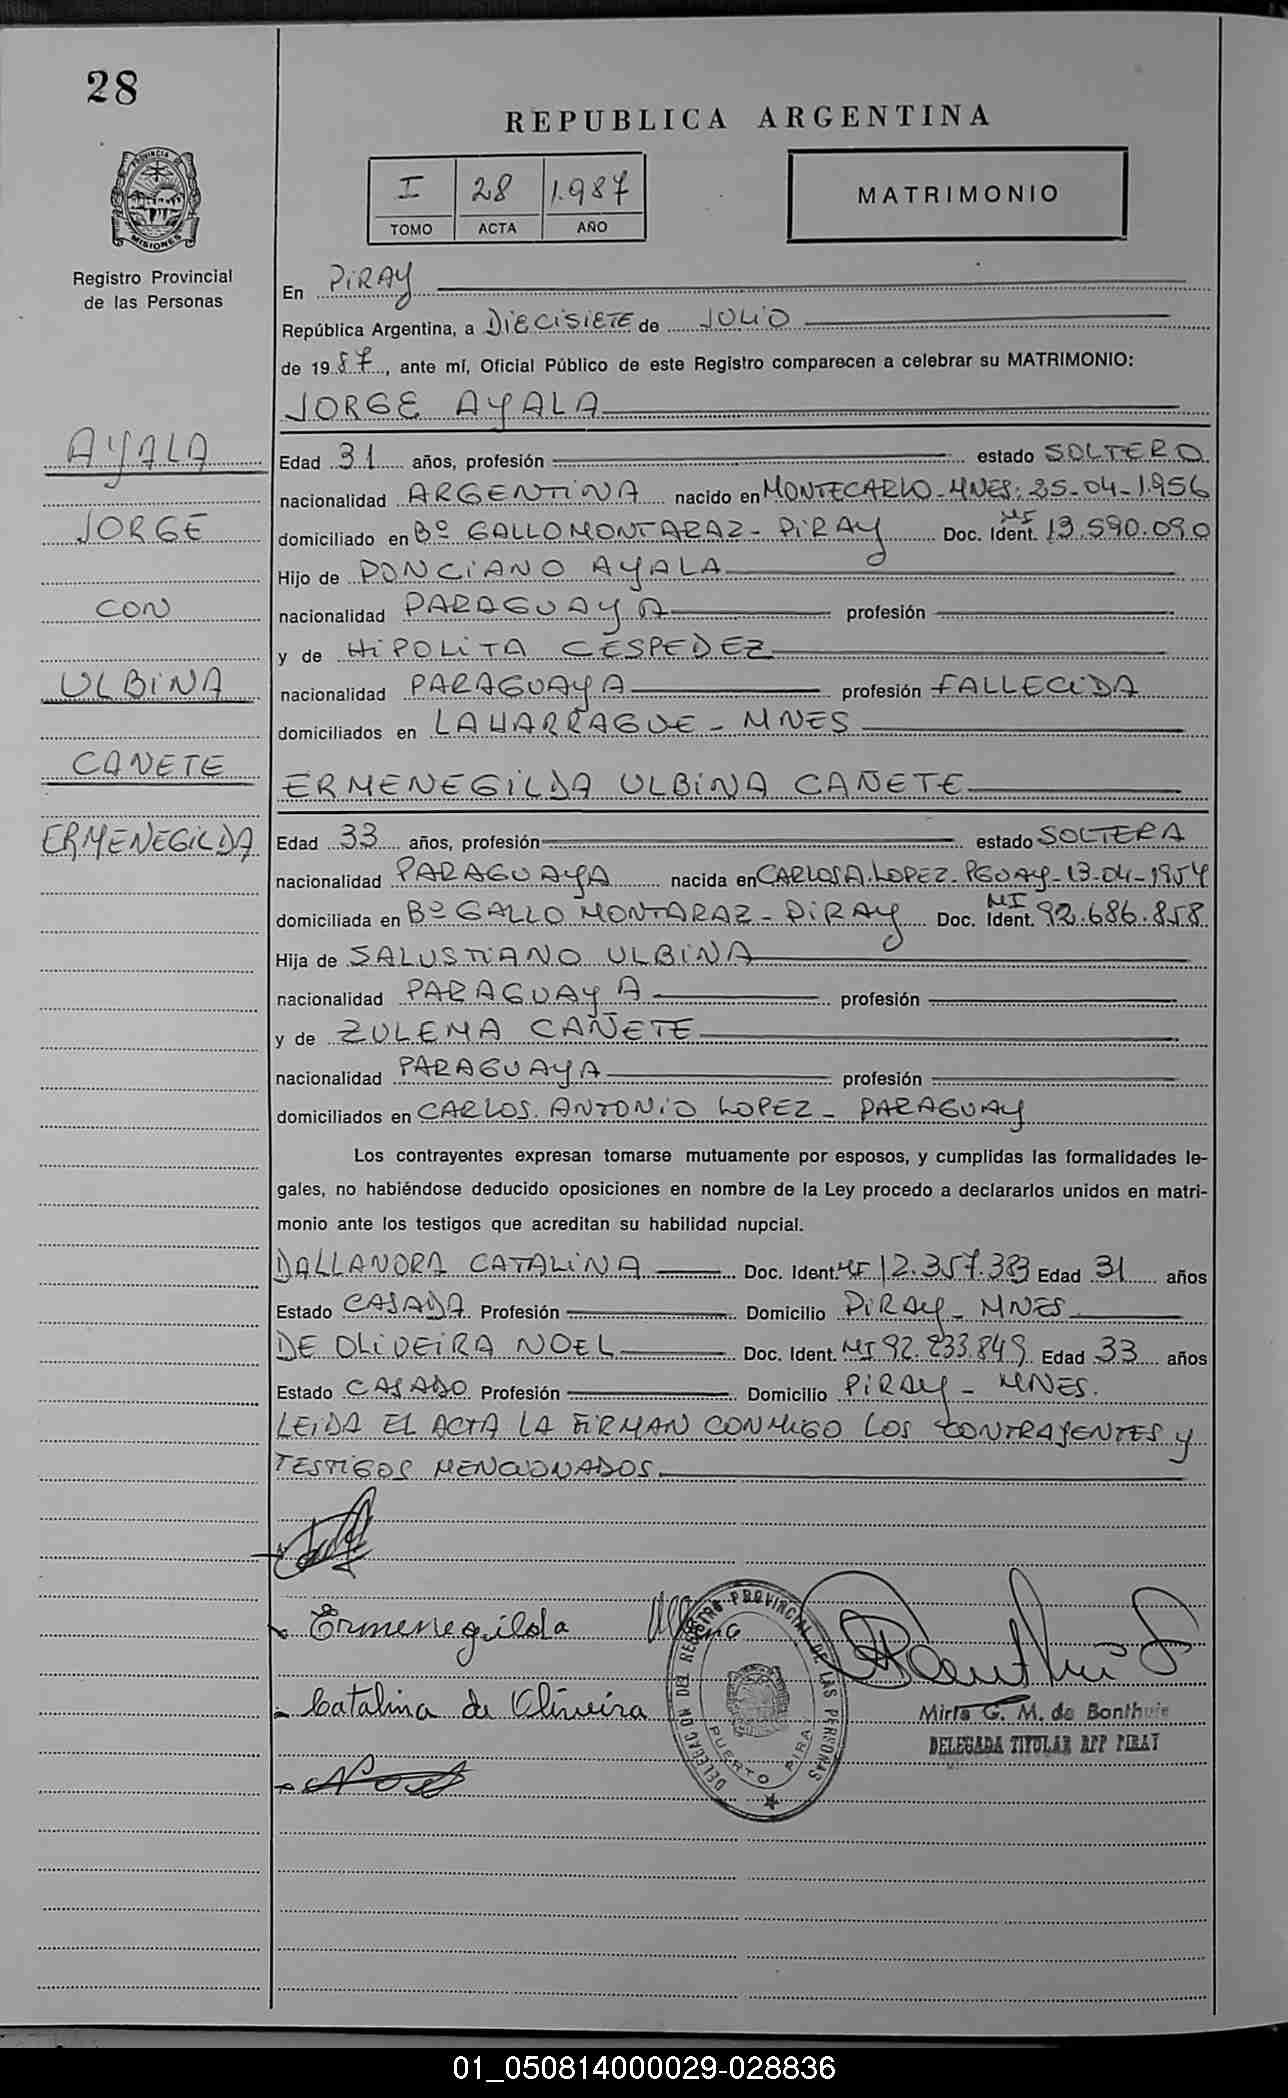 28
REPUBLICA ARGENTINA
PROVINCIA DE
MISIONES
I 28 1.987
TOMO ACTA AÑO
MATRIMONIO
Registro Provincial
de las Personas
En PiRAY
República Argentina, a DIECISIETE de JULIO
de 1987, ante mí, Oficial Público de este Registro comparecen a celebrar su MATRIMONIO:
JORGE AYALA
AYALA
JORGE
CON
ULBINA
CANETE
ERMENEGILDA
Edad 31 años, profesión estado SOLTERO
nacionalidad ARGENTINA nacido en MONTECARLO-MNES: 25-04-1956
domiciliado en Bº GALLO MONTARAZ - PIRAY Doc. Ident. MI 13.590.090
Hijo de PONCIANO AYALA
nacionalidad PARAGUAYA profesión
y de HIPOLITA CESPEDEZ
nacionalidad PARAGUAYA profesión FALLECIDA
domiciliados en LAHARRAGUE - MNES
ERMENEGILDA ULBINA CAÑETE
Edad 33 años, profesión estado SOLTERA
nacionalidad PARAGUAYA nacida en CARLOS A. LOPEZ - PGUAY - 13-04-1954
domiciliada en Bº GALLO MONTARAZ - PIRAY Doc. Ident. MI 92.686.858
Hija de SALUSTIANO ULBINA
nacionalidad PARAGUAYA profesión
y de ZULEMA CAÑETE
nacionalidad PARAGUAYA profesión
domiciliados en CARLOS ANTONIO LOPEZ - PARAGUAY
Los contrayentes expresan tomarse mutuamente por esposos, y cumplidas las formalidades le-
gales, no habiéndose deducido oposiciones en nombre de la Ley procedo a declararlos unidos en matri-
monio ante los testigos que acreditan su habilidad nupcial.
DALLANORA CATALINA Doc. Ident. 12.357.383 Edad 31 años
Estado CASADA Profesión Domicilio PIRAY - MNES
DE OLIVEIRA NOEL Doc. Ident. MI 92.233.849 Edad 33 años
Estado CASADO Profesión Domicilio PIRAY - MNES.
LEIDA EL ACTA LA FIRMAN CONMIGO LOS CONTRAYENTES y
TESTIGOS MENCIONADOS
Ermenegilda Ulbina
Catalina de Oliveira
Noel
DELEGACION DEL REGISTRO PROVINCIAL DE LAS PERSONAS
PUERTO PIRAY
Mirta G. M. de Bonthuis
DELEGADA TITULAR RPP PIRAY
01_050814000029-028836